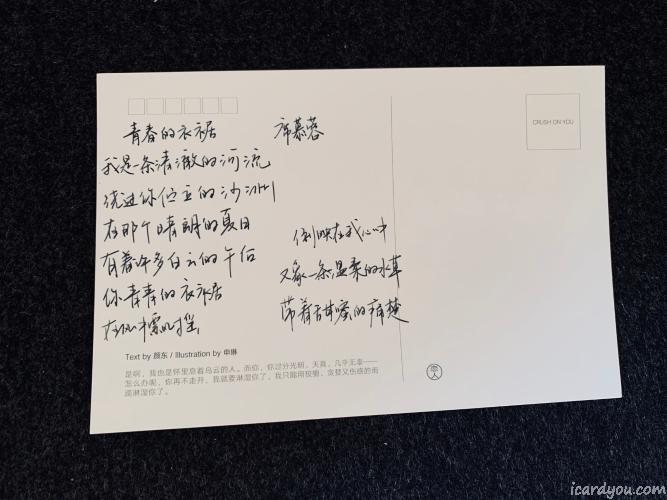 青春的衣裾 席慕蓉
我是一条清澈的河流
绕过你伫立的沙洲
在那个晴朗的夏日
有着许多白云的午后
你青青的衣裾
在风里飘摇
倒映在我心中
又象一条温柔的水草
带着甜蜜的痛楚
CRUSH ON YOU
Text by 颜东 / Illustration by 申琳
是啊，我也是怀里息着乌云的人。而你，你过分光明，天真，几乎无辜——
怎么办呢，你再不走开，我就要淋湿你了，我只能用狡黠，贪婪又伤感的雨
滴淋湿你了。
icardyou.com